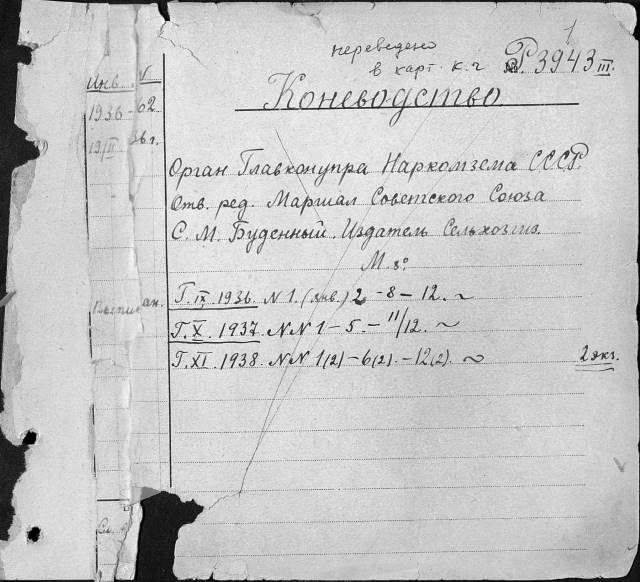 1
переведено
в карт. к.г
№ Р. 3943 III.
Инв. V
1936 - 62
19/II 36 г.
Коневодство
Орган Главконупра Наркомзема СССР.
Отв. ред. Маршал Советского Союза
С. М. Буденный. Издатель Сельхозгиз.
М. 8°
Выписан. Г. IX. 1936. N 1. (янв.) 2 - 8 - 12. ~
Г. X. 1937. NN 1 - 5 - 11/12. ~
Г. XI. 1938. NN 1(2) - 6(2). - 12(2). ~ 2 экз.